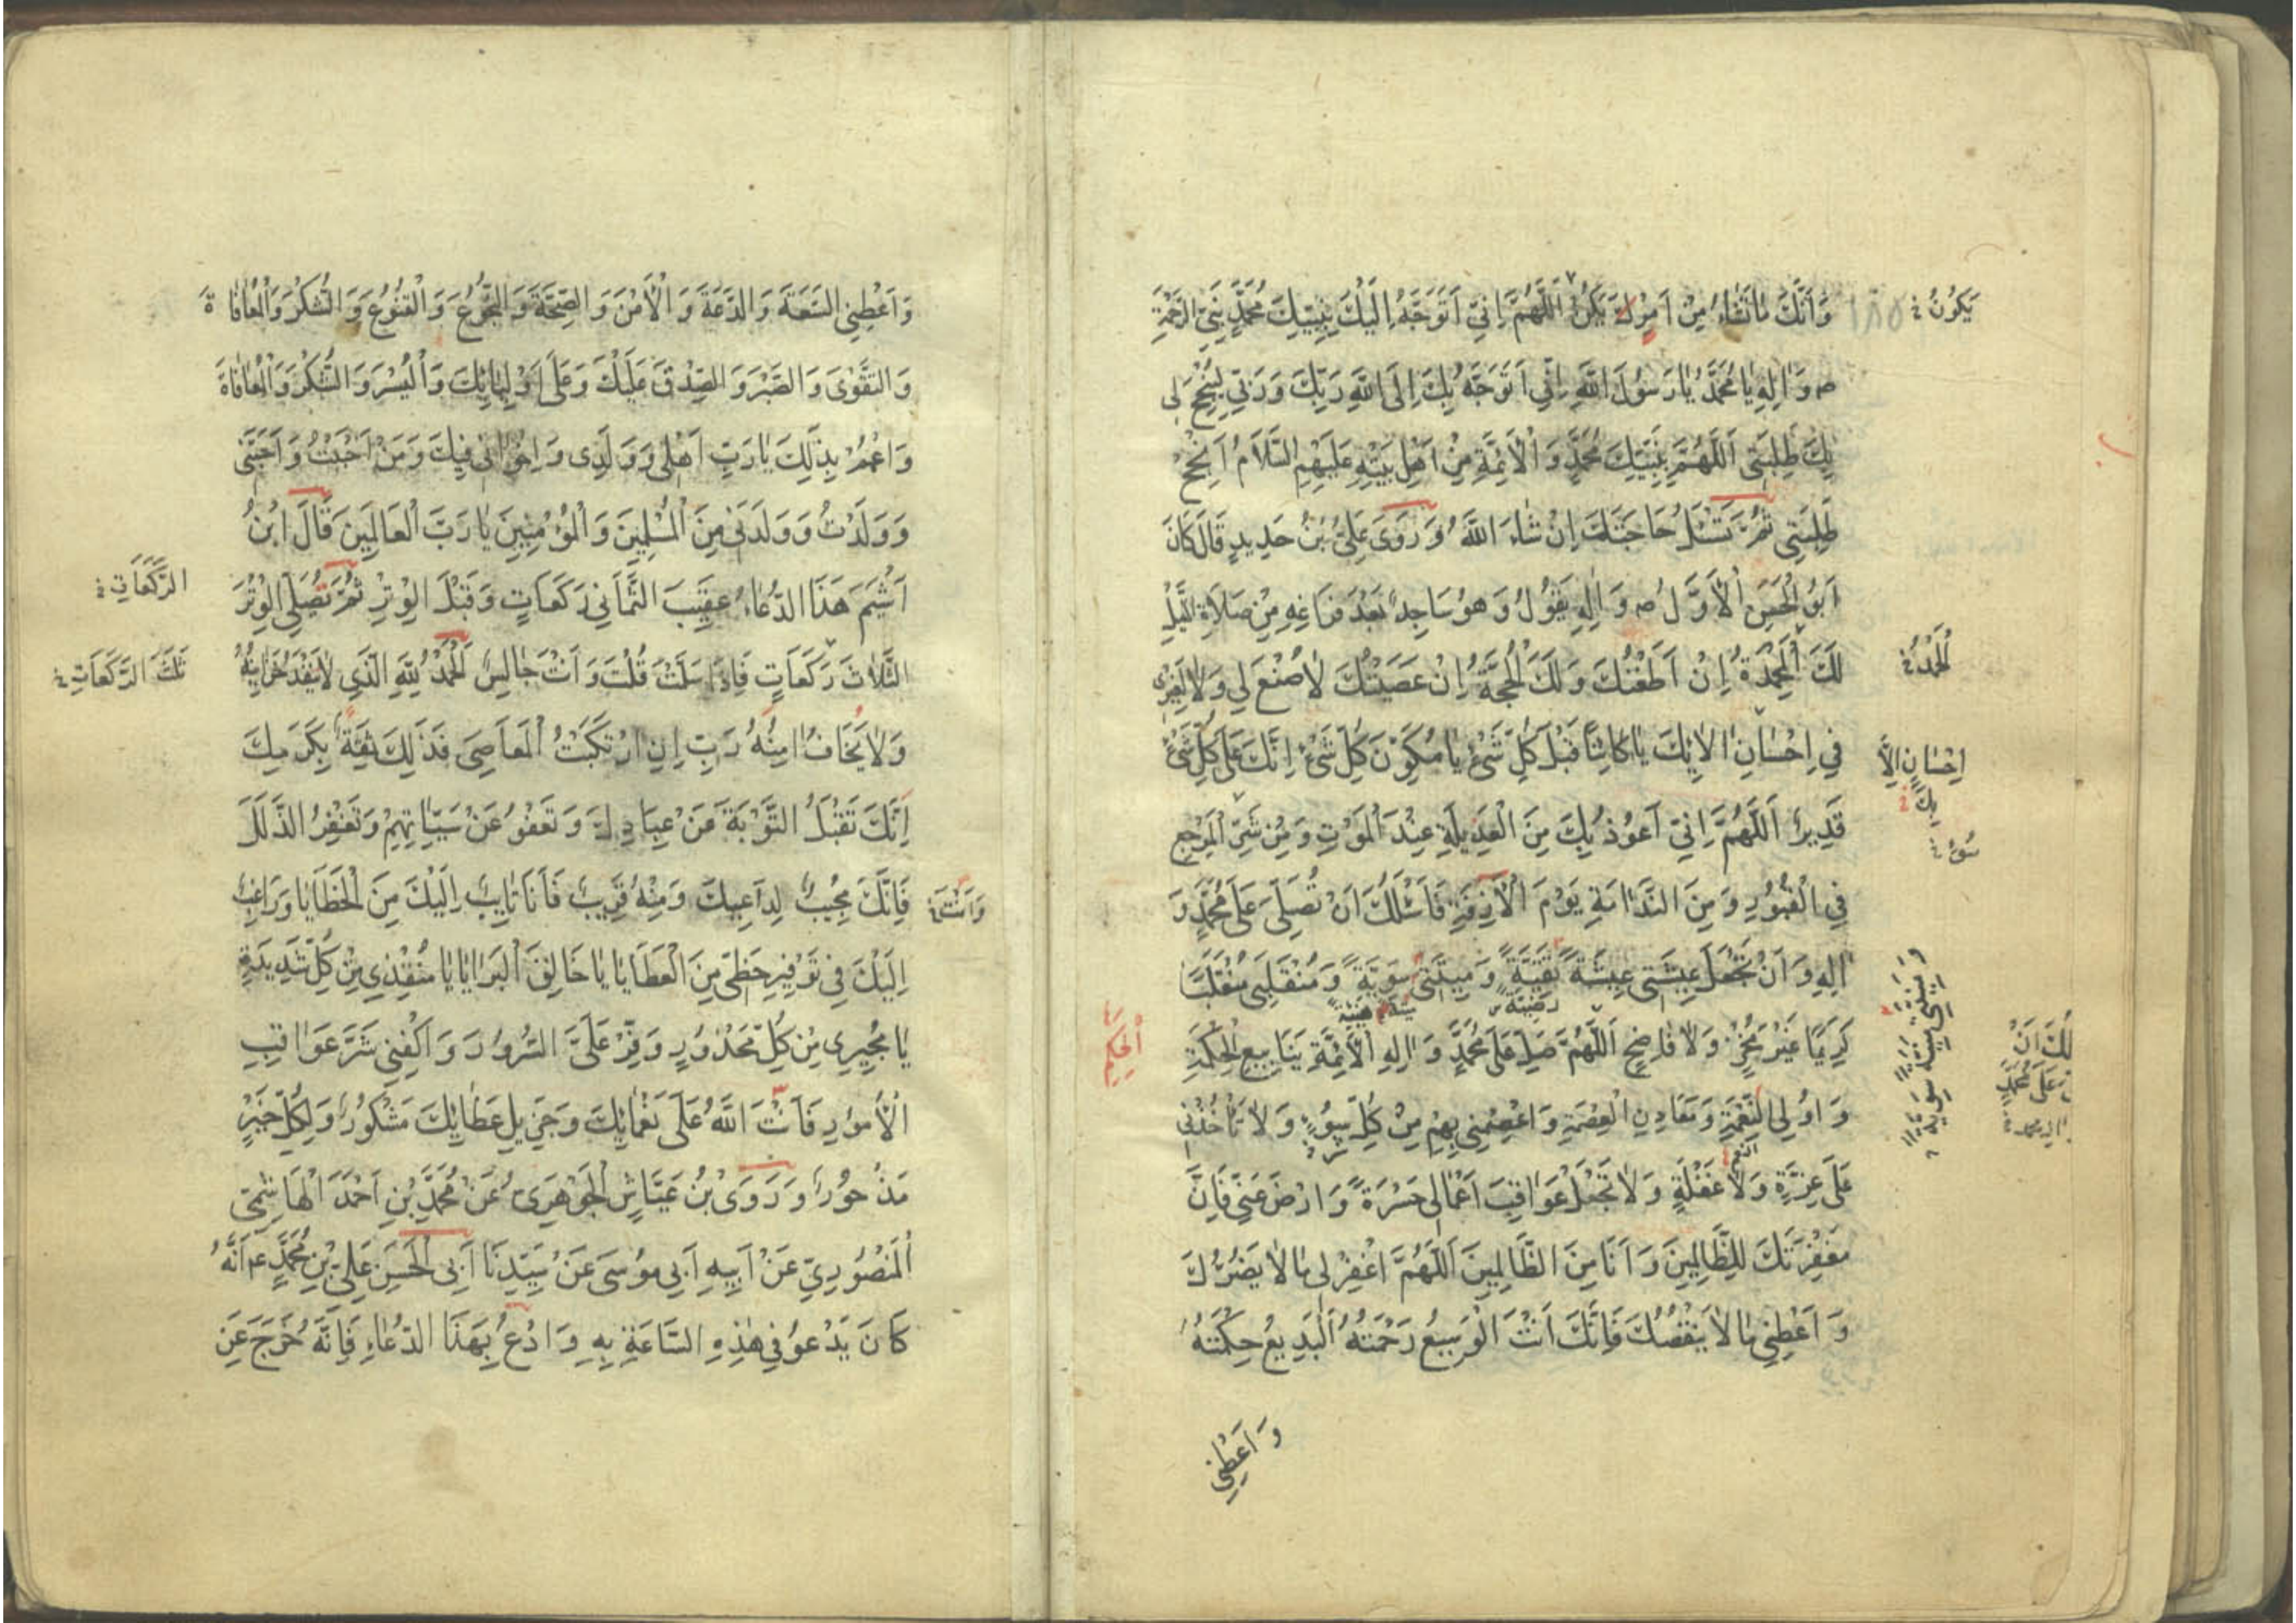 وَاَنَّكَ مٰا تَشٰاءُ مِنْ اَمْرِكَ يَكُنْ اَللّٰهُمَّ اِنّي اَتَوَجَّهُ اِلَيْكَ بِنَبِيِّكَ مُحَمَّدٍ نَبِيِّ الرَّحْمَةِ
يَكُونُ
١٨٥
ص وَاٰلِهِ يٰا مُحَمَّدُ يٰا رَسُولَ اللّٰهِ اِنّي اَتَوَجَّهُ بِكَ اِلَى اللّٰهِ رَبِّكَ وَرَبّي لِيُنْجِحَ لي
بِكَ طَلِبَتي اَللّٰهُمَّ بِنَبِيِّكَ مُحَمَّدٍ وَالْاَئِمَّةِ مِنْ اَهْلِ بَيْتِهِ عَلَيْهِمِ السَّلَامُ اَنْجِحْ
طَلِبَتي ثُمَّ تَسْئَلُ حَاجَتَكَ اِنْ شٰاءَ اللّٰهُ وَرَوَى عَلِيُّ بْنُ حَدِيدٍ قَالَ كَانَ
اَبُو الْحَسَنِ الْاَوَّلُ ص وَاٰلِهِ يَقُولُ وَهوُ سَاجِدٌ بَعْدَ فَرَاغِهِ مِنْ صَلَاةِ اللَّيْلِ
لَكَ الْمَحْمِدَةُ اِنْ اَطَعْتُكَ وَلَكَ الْحُجَّةُ اِنْ عَصَيْتُكَ لاٰ صُنْعَ لي وَلاٰ لِغَيْرى
اَلْحَمْدُ
في اِحْسٰانٍ الاٰبِكَ يٰا كَائِنًا قَبْلَ كُلِّ شَيْءٍ يٰا مُكَوِّنَ كُلِّ شَيْءٍ اِنَّكَ عَلَى كُلِّ شَيْءٍ
اِحْسٰانٍ اِلاَّ
بِكَ
قَدِيرٌ اَللّٰهُمَّ اِنّي اَعوُذُ بِكَ مِنَ الْعَدِيلَةِ عِنْدَ الْمَوْتِ وَمِنْ شَرِّ الْمَرْجِعِ
سوُء
فِي الْقُبُورِ وَمِنَ النَّدَامَةِ يَوْمَ الْاٰزِفَةِ فَاَسْئَلُكَ اَنْ تُصَلِّيَ عَلَى مُحَمَّدٍ وَ
اٰلِهِ وَاَنْ تَجْعَلَ عِيشَتي عِيشَةً نَقِيَّةً وَمِيتَتي سَوِيَّةً وَمُنْقَلَبي مُنْقَلَبًا
وَمِيتَتي مِيتَةً سَوِيَّةً
كَرِيمًا غَيْرَ مُخْزٍ وَلاٰ فَاضِحٍ اَللّٰهُمَّ صَلِّ عَلَى مُحَمَّدٍ وَاٰلِهِ الْاَئِمَّةِ يَنَابِيعِ الْحِكْمَةِ
اَلْحِكَمِ
وَاوُلِى النِّعْمَةِ وَمَعَادِنِ الْعِصْمَةِ وَاعْصِمْني بِهِمْ مِنْ كُلِّ سُوءٍ وَلاٰ تَأْخُذْني
النعم
عَلَى غِرَّةٍ وَلاٰ غَفْلَةٍ وَلاٰ تَجْعَلْ عَوَاقِبَ اَعْمَالي حَسْرَةً وَارْضَ عَنّي فَاِنَّ
مَغْفِرَتَكَ لِلظَّالِمِينَ وَاَنَا مِنَ الظَّالِمِينَ اَللّٰهُمَّ اغْفِرْ لي مٰا لاٰ يَضُرُّكَ
وَاَعْطِني مٰا لاٰ يَنْقُصُكَ فَاِنَّكَ اَنْتَ الْوَسِيعُ رَحْمَتُهُ اَلْبَدِيعُ حِكْمَتُهُ
وَاَعْطِني
وَاَعْطِني السَّعَةَ وَالدَّعَةَ وَالْاَمْنَ وَالصِّحَّةَ وَالنُّجُوعَ وَالْقُنُوعَ وَالشُّكْرَ وَالْمُعٰافٰاةَ
وَالتَّقْوَى وَالصَّبْرَ وَالصِّدْقَ عَلَيْكَ وَعَلَى اَوْلِيٰائِكَ وَالْيُسْرَ وَالشُّكْرَ وَالْمُعٰافٰاةَ
وَاعْمُمْ بِذٰلِكَ يٰا رَبِّ اَهْلي وَوَلَدى وَاِخْوٰاني فِيكَ وَمَنْ اَحْبَبْتُ وَاَحَبَّنى
وَوَلَدْتُ وَوَلَدَنى مِنَ الْمُسْلِمِينَ وَالْمُؤْمِنِينَ يٰا رَبَّ الْعَالَمِينَ قَالَ ابْنُ
اَشْيَمَ هَذَا الدُّعٰاءُ عَقِيبَ الثَّمَانِي رَكَعَاتٍ وَقَبْلَ الْوِتْرِ ثُمَّ تُصَلِّي الْوِتْرَ
الرَّكَعَاتِ
الثَّلَاثَ رَكَعَاتٍ فَاِذَا سَلَّمْتَ قُلْتَ وَاَنْتَ جَالِسٌ اَلْحَمْدُ لِلّٰهِ الَّذي لاٰ يَنْفَدُ خَزَائِنُهُ
ثَلٰثَ الرَّكَعَاتِ
وَلاٰ يَخَافُ اٰمِنُهُ رَبِّ اِنِ ارْتَكَبْتُ الْمَعَاصِىَ فَذٰلِكَ ثِقَةً بِكَرَمِكَ
اِنَّكَ تَقْبَلُ التَّوْبَةَ عَنْ عِبَادِكَ وَتَعْفوُ عَنْ سَيِّئَاتِهِمْ وَتَغْفِرُ الذَّلَلَ
فَاِنَّكَ مُجِيبٌ لِدَاعِيكَ وَمِنْهُ قَرِيبٌ فَاَنَا تَايِبٌ اِلَيْكَ مِنَ الْخَطَايَا وَرَاغِبٌ
وَاَنْتَ
اِلَيْكَ في تَوْفِيرِ حَظّي مِنَ الْعَطَايَا يٰا خَالِقَ الْبَرَايٰا يٰا مُنْقِذِي مِنْ كُلِّ شَدِيدَةٍ
يٰا مُجِيرِى مِنْ كُلِّ مَحْذُورٍ وَفِّرْ عَلَىَّ السُّرُورَ وَاكْفِني شَرَّ عَوَاقِبِ
الْاُمُورِ فَاَنْتَ اللّٰهُ عَلَى نَعْمَائِكَ وَجَزِيلِ عَطَائِكَ مَشْكُورٌ وَلِكُلِّ خَيْرٍ
مَذْخُورٌ وَرَوَىٰ بْنُ عَيَّاشٍ الْجَوْهَرِىُّ عَنْ مُحَمَّدِ بْنِ اَحْمَدَ الْهَاشِمِيِّ
الْمَنْصُورِيِّ عَنْ اَبِيهِ اَبي موُسَى عَنْ سَيِّدِنَا اَبِى الْحَسَنِ عَلِيِّ بْنِ مُحَمَّدٍ ع اَنَّهُ
كَانَ يَدْعوُ في هٰذِهِ السَّاعَةِ بِهِ وَادْعُ بِهَذَا الدُّعٰاءِ فَاِنَّهُ خَرَجَ عَنِ